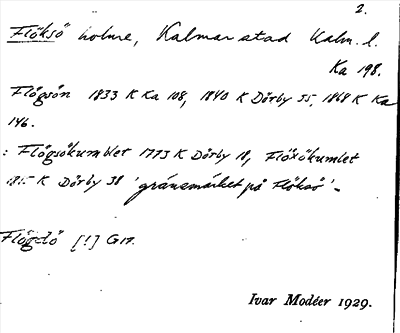 2.
Flöksö holme, Kalmar stad Kalm. l.
Ka 198.
Flögsön 1833 K Ka 108, 1840 K Dörby 55, 1868 K Ka
146.
: Flögsökumblet 1773 K Dörby 18, Flöxökumlet
K Dörby 38 'gränsmärket på Flöksö'.
Flögdö [!] G17.
Ivar Modéer 1929.